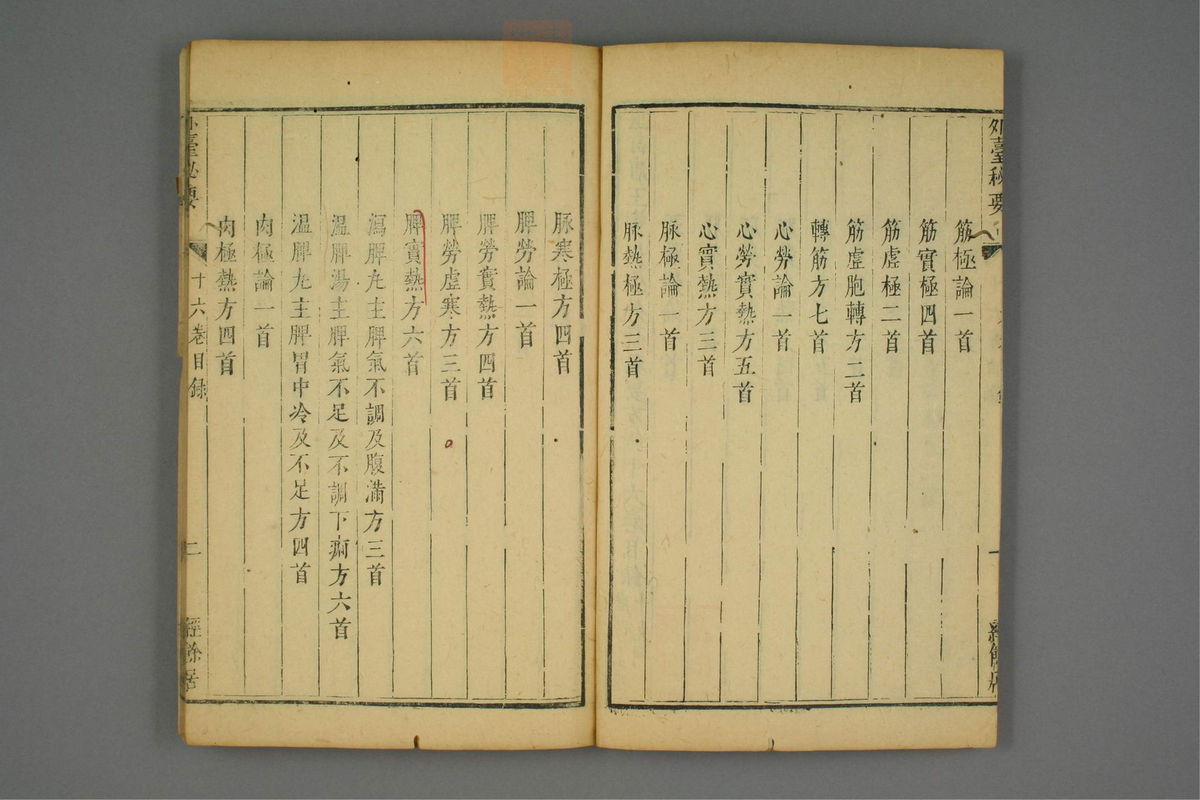 外臺秘要
一
筋極論一首
筋實極四首
筋虛極二首
筋虛胞轉方二首
轉筋方七首
心勞論一首
心勞實熱方五首
心實熱方三首
脉極論一首
脉熱極方三首
脉寒極方四首
脾勞論一首
脾勞實熱方四首
脾勞虛寒方三首
脾實熱方六首
瀉脾丸主脾氣不調及腹滿方三首
溫脾湯主脾氣不足及不調下痢方六首
溫脾丸主脾胃中冷及不足方四首
肉極論一首
肉極熱方四首
臺秘要
十六卷目録
二
經餘居